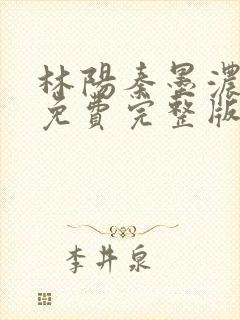 林陽秦墨濃
免費完整版
李井泉